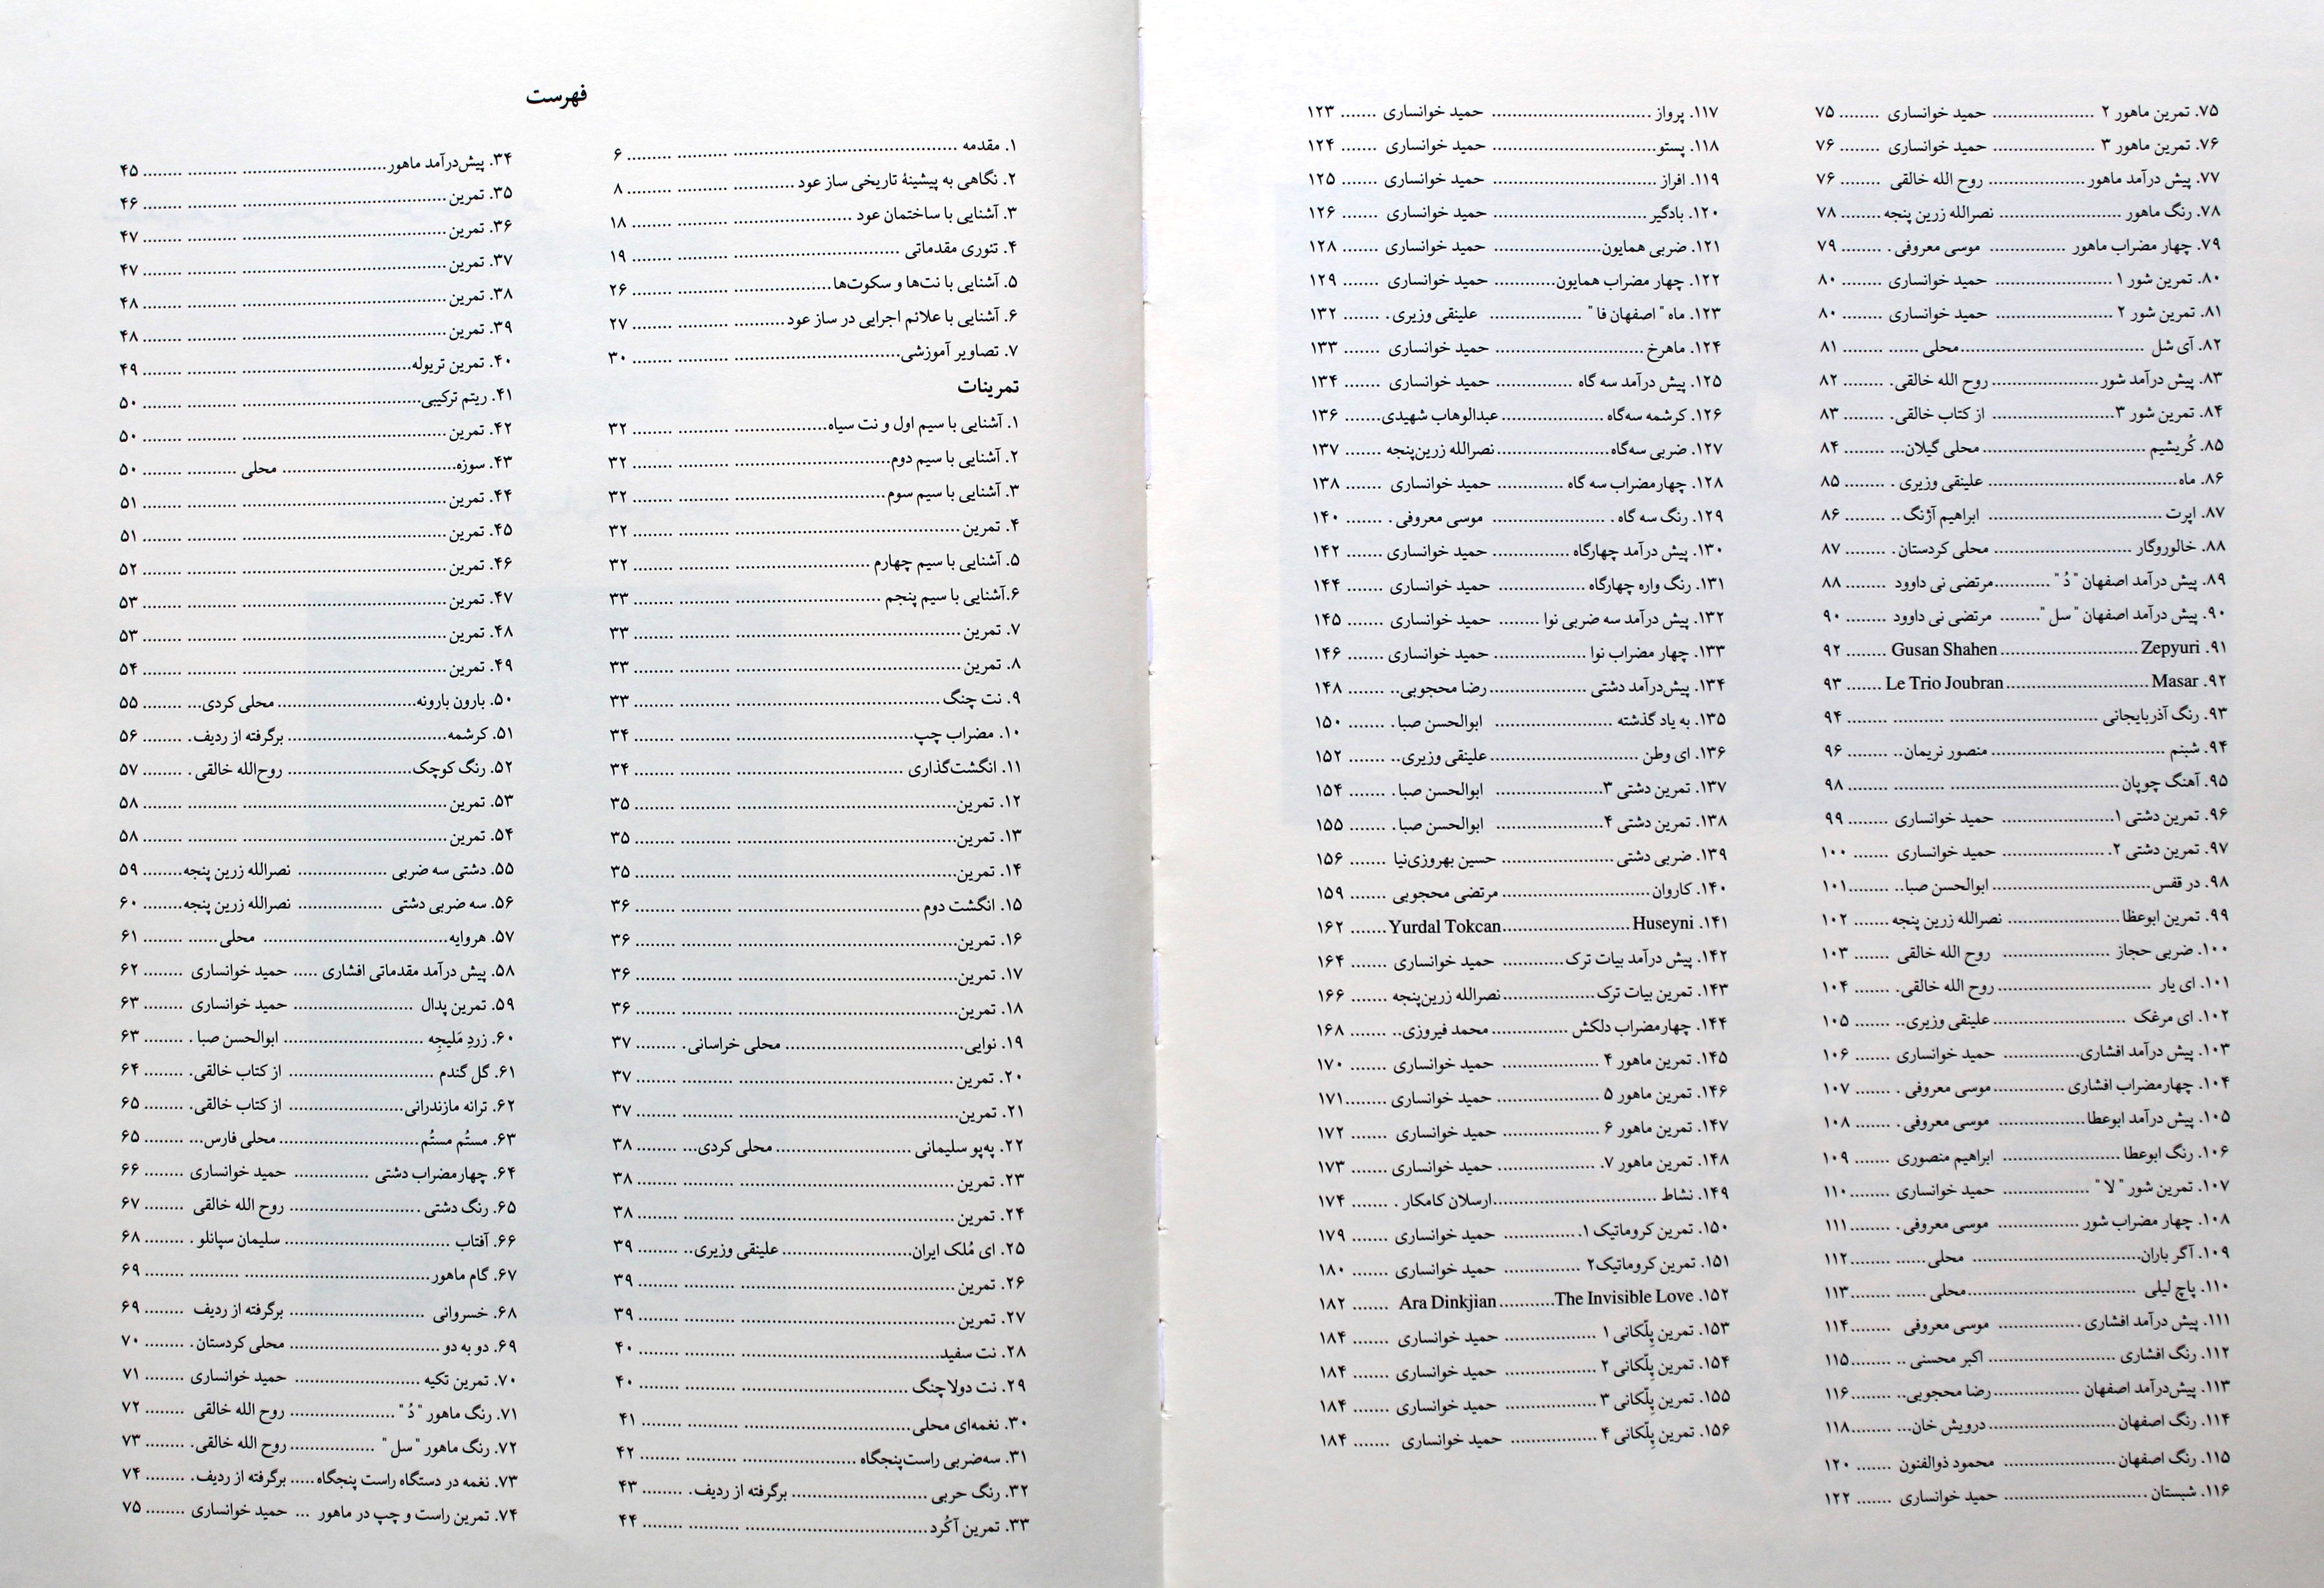 فهرست
۱. مقدمه ........ ۶
۲. نگاهی به پیشینهٔ تاریخی ساز عود ........ ۸
۳. آشنایی با ساختمان عود ........ ۱۸
۴. تئوری مقدماتی ........ ۱۹
۵. آشنایی با نت‌ها و سکوت‌ها ........ ۲۶
۶. آشنایی با علائم اجرایی در ساز عود ........ ۲۷
۷. تصاویر آموزشی ........ ۳۰
تمرینات
۱. آشنایی با سیم اول و نت سیاه ........ ۳۲
۲. آشنایی با سیم دوم ........ ۳۲
۳. آشنایی با سیم سوم ........ ۳۲
۴. تمرین ........ ۳۲
۵. آشنایی با سیم چهارم ........ ۳۲
۶.آشنایی با سیم پنجم ........ ۳۳
۷. تمرین ........ ۳۳
۸. تمرین ........ ۳۳
۹. نت چنگ ........ ۳۳
۱۰. مضراب چپ ........ ۳۴
۱۱. انگشت‌گذاری ........ ۳۴
۱۲. تمرین ........ ۳۵
۱۳. تمرین ........ ۳۵
۱۴. تمرین ........ ۳۵
۱۵. انگشت دوم ........ ۳۶
۱۶. تمرین ........ ۳۶
۱۷. تمرین ........ ۳۶
۱۸. تمرین ........ ۳۶
۱۹. نوایی ........ محلی خراسانی ........ ۳۷
۲۰. تمرین ........ ۳۷
۲۱. تمرین ........ ۳۷
۲۲. په‌پو سلیمانی ........ محلی کردی ........ ۳۸
۲۳. تمرین ........ ۳۸
۲۴. تمرین ........ ۳۸
۲۵. ای مُلک ایران ........ علینقی وزیری ........ ۳۹
۲۶. تمرین ........ ۳۹
۲۷. تمرین ........ ۳۹
۲۸. نت سفید ........ ۴۰
۲۹. نت دولاچنگ ........ ۴۰
۳۰. نغمه‌ای محلی ........ ۴۱
۳۱. سه‌ضربی راست‌پنجگاه ........ ۴۲
۳۲. رنگ حربی ........ برگرفته از ردیف ........ ۴۳
۳۳. تمرین آکُرد ........ ۴۴
۳۴. پیش‌درآمد ماهور ........ ۴۵
۳۵. تمرین ........ ۴۶
۳۶. تمرین ........ ۴۷
۳۷. تمرین ........ ۴۷
۳۸. تمرین ........ ۴۸
۳۹. تمرین ........ ۴۸
۴۰. تمرین تریوله ........ ۴۹
۴۱. ریتم ترکیبی ........ ۵۰
۴۲. تمرین ........ ۵۰
۴۳. سوزه ........ محلی ........ ۵۰
۴۴. تمرین ........ ۵۱
۴۵. تمرین ........ ۵۱
۴۶. تمرین ........ ۵۲
۴۷. تمرین ........ ۵۳
۴۸. تمرین ........ ۵۳
۴۹. تمرین ........ ۵۴
۵۰. بارون بارونه ........ محلی کردی ........ ۵۵
۵۱. کرشمه ........ برگرفته از ردیف ........ ۵۶
۵۲. رنگ کوچک ........ روح‌الله خالقی ........ ۵۷
۵۳. تمرین ........ ۵۸
۵۴. تمرین ........ ۵۸
۵۵. دشتی سه ضربی ........ نصرالله زرین پنجه ........ ۵۹
۵۶. سه ضربی دشتی ........ نصرالله زرین پنجه ........ ۶۰
۵۷. هروایه ........ محلی ........ ۶۱
۵۸. پیش درآمد مقدماتی افشاری ..... حمید خوانساری ........ ۶۲
۵۹. تمرین پدال ........ حمید خوانساری ........ ۶۳
۶۰. زردِ مَلیجِه ........ ابوالحسن صبا ........ ۶۳
۶۱. گل گندم ........ از کتاب خالقی ........ ۶۴
۶۲. ترانه مازندرانی ........ از کتاب خالقی ........ ۶۵
۶۳. مستُم مستُم ........ محلی فارس ........ ۶۵
۶۴. چهارمضراب دشتی ........ حمید خوانساری ........ ۶۶
۶۵. رنگ دشتی ........ روح الله خالقی ........ ۶۷
۶۶. آفتاب ........ سلیمان سپانلو ........ ۶۸
۶۷. گام ماهور ........ ۶۹
۶۸. خسروانی ........ برگرفته از ردیف ........ ۶۹
۶۹. دو به دو ........ محلی کردستان ........ ۷۰
۷۰. تمرین تکیه ........ حمید خوانساری ........ ۷۱
۷۱. رنگ ماهور "دُ" ........ روح الله خالقی ........ ۷۲
۷۲. رنگ ماهور "سل" ........ روح الله خالقی ........ ۷۳
۷۳. نغمه در دستگاه راست پنجگاه ..... برگرفته از ردیف ........ ۷۴
۷۴. تمرین راست و چپ در ماهور ... حمید خوانساری ........ ۷۵
۷۵. تمرین ماهور ۲ ........ حمید خوانساری ........ ۷۵
۷۶. تمرین ماهور ۳ ........ حمید خوانساری ........ ۷۶
۷۷. پیش درآمد ماهور ........ روح الله خالقی ........ ۷۶
۷۸. رنگ ماهور ........ نصرالله زرین پنجه ........ ۷۸
۷۹. چهار مضراب ماهور ........ موسی معروفی ........ ۷۹
۸۰. تمرین شور ۱ ........ حمید خوانساری ........ ۸۰
۸۱. تمرین شور ۲ ........ حمید خوانساری ........ ۸۰
۸۲. آی شل ........ محلی ........ ۸۱
۸۳. پیش درآمد شور ........ روح الله خالقی ........ ۸۲
۸۴. تمرین شور ۳ ........ از کتاب خالقی ........ ۸۳
۸۵. کُریشیم ........ محلی گیلان ........ ۸۴
۸۶. ماه ........ علینقی وزیری ........ ۸۵
۸۷. اپرت ........ ابراهیم آژنگ ........ ۸۶
۸۸. خالوروگار ........ محلی کردستان ........ ۸۷
۸۹. پیش درآمد اصفهان "دُ" ........ مرتضی نی داوود ........ ۸۸
۹۰. پیش درآمد اصفهان "سل" ........ مرتضی نی داوود ........ ۹۰
۹۱. Zepyuri ........ Gusan Shahen ........ ۹۲
۹۲. Masar ........ Le Trio Joubran ....... ۹۳
۹۳. رنگ آذربایجانی ........ ۹۴
۹۴. شبنم ........ منصور نریمان ........ ۹۶
۹۵. آهنگ چوپان ........ ۹۸
۹۶. تمرین دشتی ۱ ........ حمید خوانساری ........ ۹۹
۹۷. تمرین دشتی ۲ ........ حمید خوانساری ....... ۱۰۰
۹۸. در قفس ........ ابوالحسن صبا ........ ۱۰۱
۹۹. تمرین ابوعطا ........ نصرالله زرین پنجه ....... ۱۰۲
۱۰۰. ضربی حجاز ........ روح الله خالقی ....... ۱۰۳
۱۰۱. ای یار ........ روح الله خالقی ....... ۱۰۴
۱۰۲. ای مرغک ........ علینقی وزیری ....... ۱۰۵
۱۰۳. پیش درآمد افشاری ........ حمید خوانساری ....... ۱۰۶
۱۰۴. چهارمضراب افشاری ........ موسی معروفی ....... ۱۰۷
۱۰۵. پیش درآمد ابوعطا ........ موسی معروفی ....... ۱۰۸
۱۰۶. رنگ ابوعطا ........ ابراهیم منصوری ....... ۱۰۹
۱۰۷. تمرین شور "لا" ........ حمید خوانساری ........ ۱۱۰
۱۰۸. چهار مضراب شور ........ موسی معروفی ........ ۱۱۱
۱۰۹. آگر باران ........ محلی ........ ۱۱۲
۱۱۰. پاچ لیلی ........ محلی ........ ۱۱۳
۱۱۱. پیش درآمد افشاری ........ موسی معروفی ........ ۱۱۴
۱۱۲. رنگ افشاری ........ اکبر محسنی ........ ۱۱۵
۱۱۳. پیش‌درآمد اصفهان ........ رضا محجوبی ........ ۱۱۶
۱۱۴. رنگ اصفهان ........ درویش خان ........ ۱۱۸
۱۱۵. رنگ اصفهان ........ محمود ذوالفنون ....... ۱۲۰
۱۱۶. شبستان ........ حمید خوانساری ....... ۱۲۲
۱۱۷. پرواز ........ حمید خوانساری ....... ۱۲۳
۱۱۸. پستو ........ حمید خوانساری ....... ۱۲۴
۱۱۹. افراز ........ حمید خوانساری ....... ۱۲۵
۱۲۰. بادگیر ........ حمید خوانساری ....... ۱۲۶
۱۲۱. ضربی همایون ........ حمید خوانساری ....... ۱۲۸
۱۲۲. چهار مضراب همایون ........ حمید خوانساری ....... ۱۲۹
۱۲۳. ماه "اصفهان فا" ........ علینقی وزیری ....... ۱۳۲
۱۲۴. ماهرخ ........ حمید خوانساری ....... ۱۳۳
۱۲۵. پیش درآمد سه گاه ........ حمید خوانساری ....... ۱۳۴
۱۲۶. کرشمه سه‌گاه ........ عبدالوهاب شهیدی ....... ۱۳۶
۱۲۷. ضربی سه‌گاه ........ نصرالله زرین‌پنجه ....... ۱۳۷
۱۲۸. چهارمضراب سه گاه ........ حمید خوانساری ....... ۱۳۸
۱۲۹. رنگ سه گاه ........ موسی معروفی ....... ۱۴۰
۱۳۰. پیش درآمد چهارگاه ........ حمید خوانساری ....... ۱۴۲
۱۳۱. رنگ واره چهارگاه ........ حمید خوانساری ....... ۱۴۴
۱۳۲. پیش درآمد سه ضربی نوا ........ حمید خوانساری ....... ۱۴۵
۱۳۳. چهار مضراب نوا ........ حمید خوانساری ....... ۱۴۶
۱۳۴. پیش‌درآمد دشتی ........ رضا محجوبی ....... ۱۴۸
۱۳۵. به یاد گذشته ........ ابوالحسن صبا ....... ۱۵۰
۱۳۶. ای وطن ........ علینقی وزیری ....... ۱۵۲
۱۳۷. تمرین دشتی ۳ ........ ابوالحسن صبا ....... ۱۵۴
۱۳۸. تمرین دشتی ۴ ........ ابوالحسن صبا ....... ۱۵۵
۱۳۹. ضربی دشتی ........ حسین بهروزی‌نیا ....... ۱۵۶
۱۴۰. کاروان ........ مرتضی محجوبی ....... ۱۵۹
۱۴۱. Huseyni ........ Yurdal Tokcan ....... ۱۶۲
۱۴۲. پیش درآمد بیات ترک ........ حمید خوانساری ....... ۱۶۴
۱۴۳. تمرین بیات ترک ........ نصرالله زرین‌پنجه ....... ۱۶۶
۱۴۴. چهارمضراب دلکش ........ محمد فیروزی ....... ۱۶۸
۱۴۵. تمرین ماهور ۴ ........ حمید خوانساری ....... ۱۷۰
۱۴۶. تمرین ماهور ۵ ........ حمید خوانساری ....... ۱۷۱
۱۴۷. تمرین ماهور ۶ ........ حمید خوانساری ....... ۱۷۲
۱۴۸. تمرین ماهور ۷ ........ حمید خوانساری ....... ۱۷۳
۱۴۹. نشاط ........ ارسلان کامکار ....... ۱۷۴
۱۵۰. تمرین کروماتیک ۱ ........ حمید خوانساری ....... ۱۷۹
۱۵۱. تمرین کروماتیک۲ ........ حمید خوانساری ....... ۱۸۰
۱۵۲. The Invisible Love ........ Ara Dinkjian ....... ۱۸۲
۱۵۳. تمرین پِلّکانی ۱ ........ حمید خوانساری ....... ۱۸۴
۱۵۴. تمرین پِلّکانی ۲ ........ حمید خوانساری ....... ۱۸۴
۱۵۵. تمرین پِلّکانی ۳ ........ حمید خوانساری ....... ۱۸۴
۱۵۶. تمرین پِلّکانی ۴ ........ حمید خوانساری ....... ۱۸۴